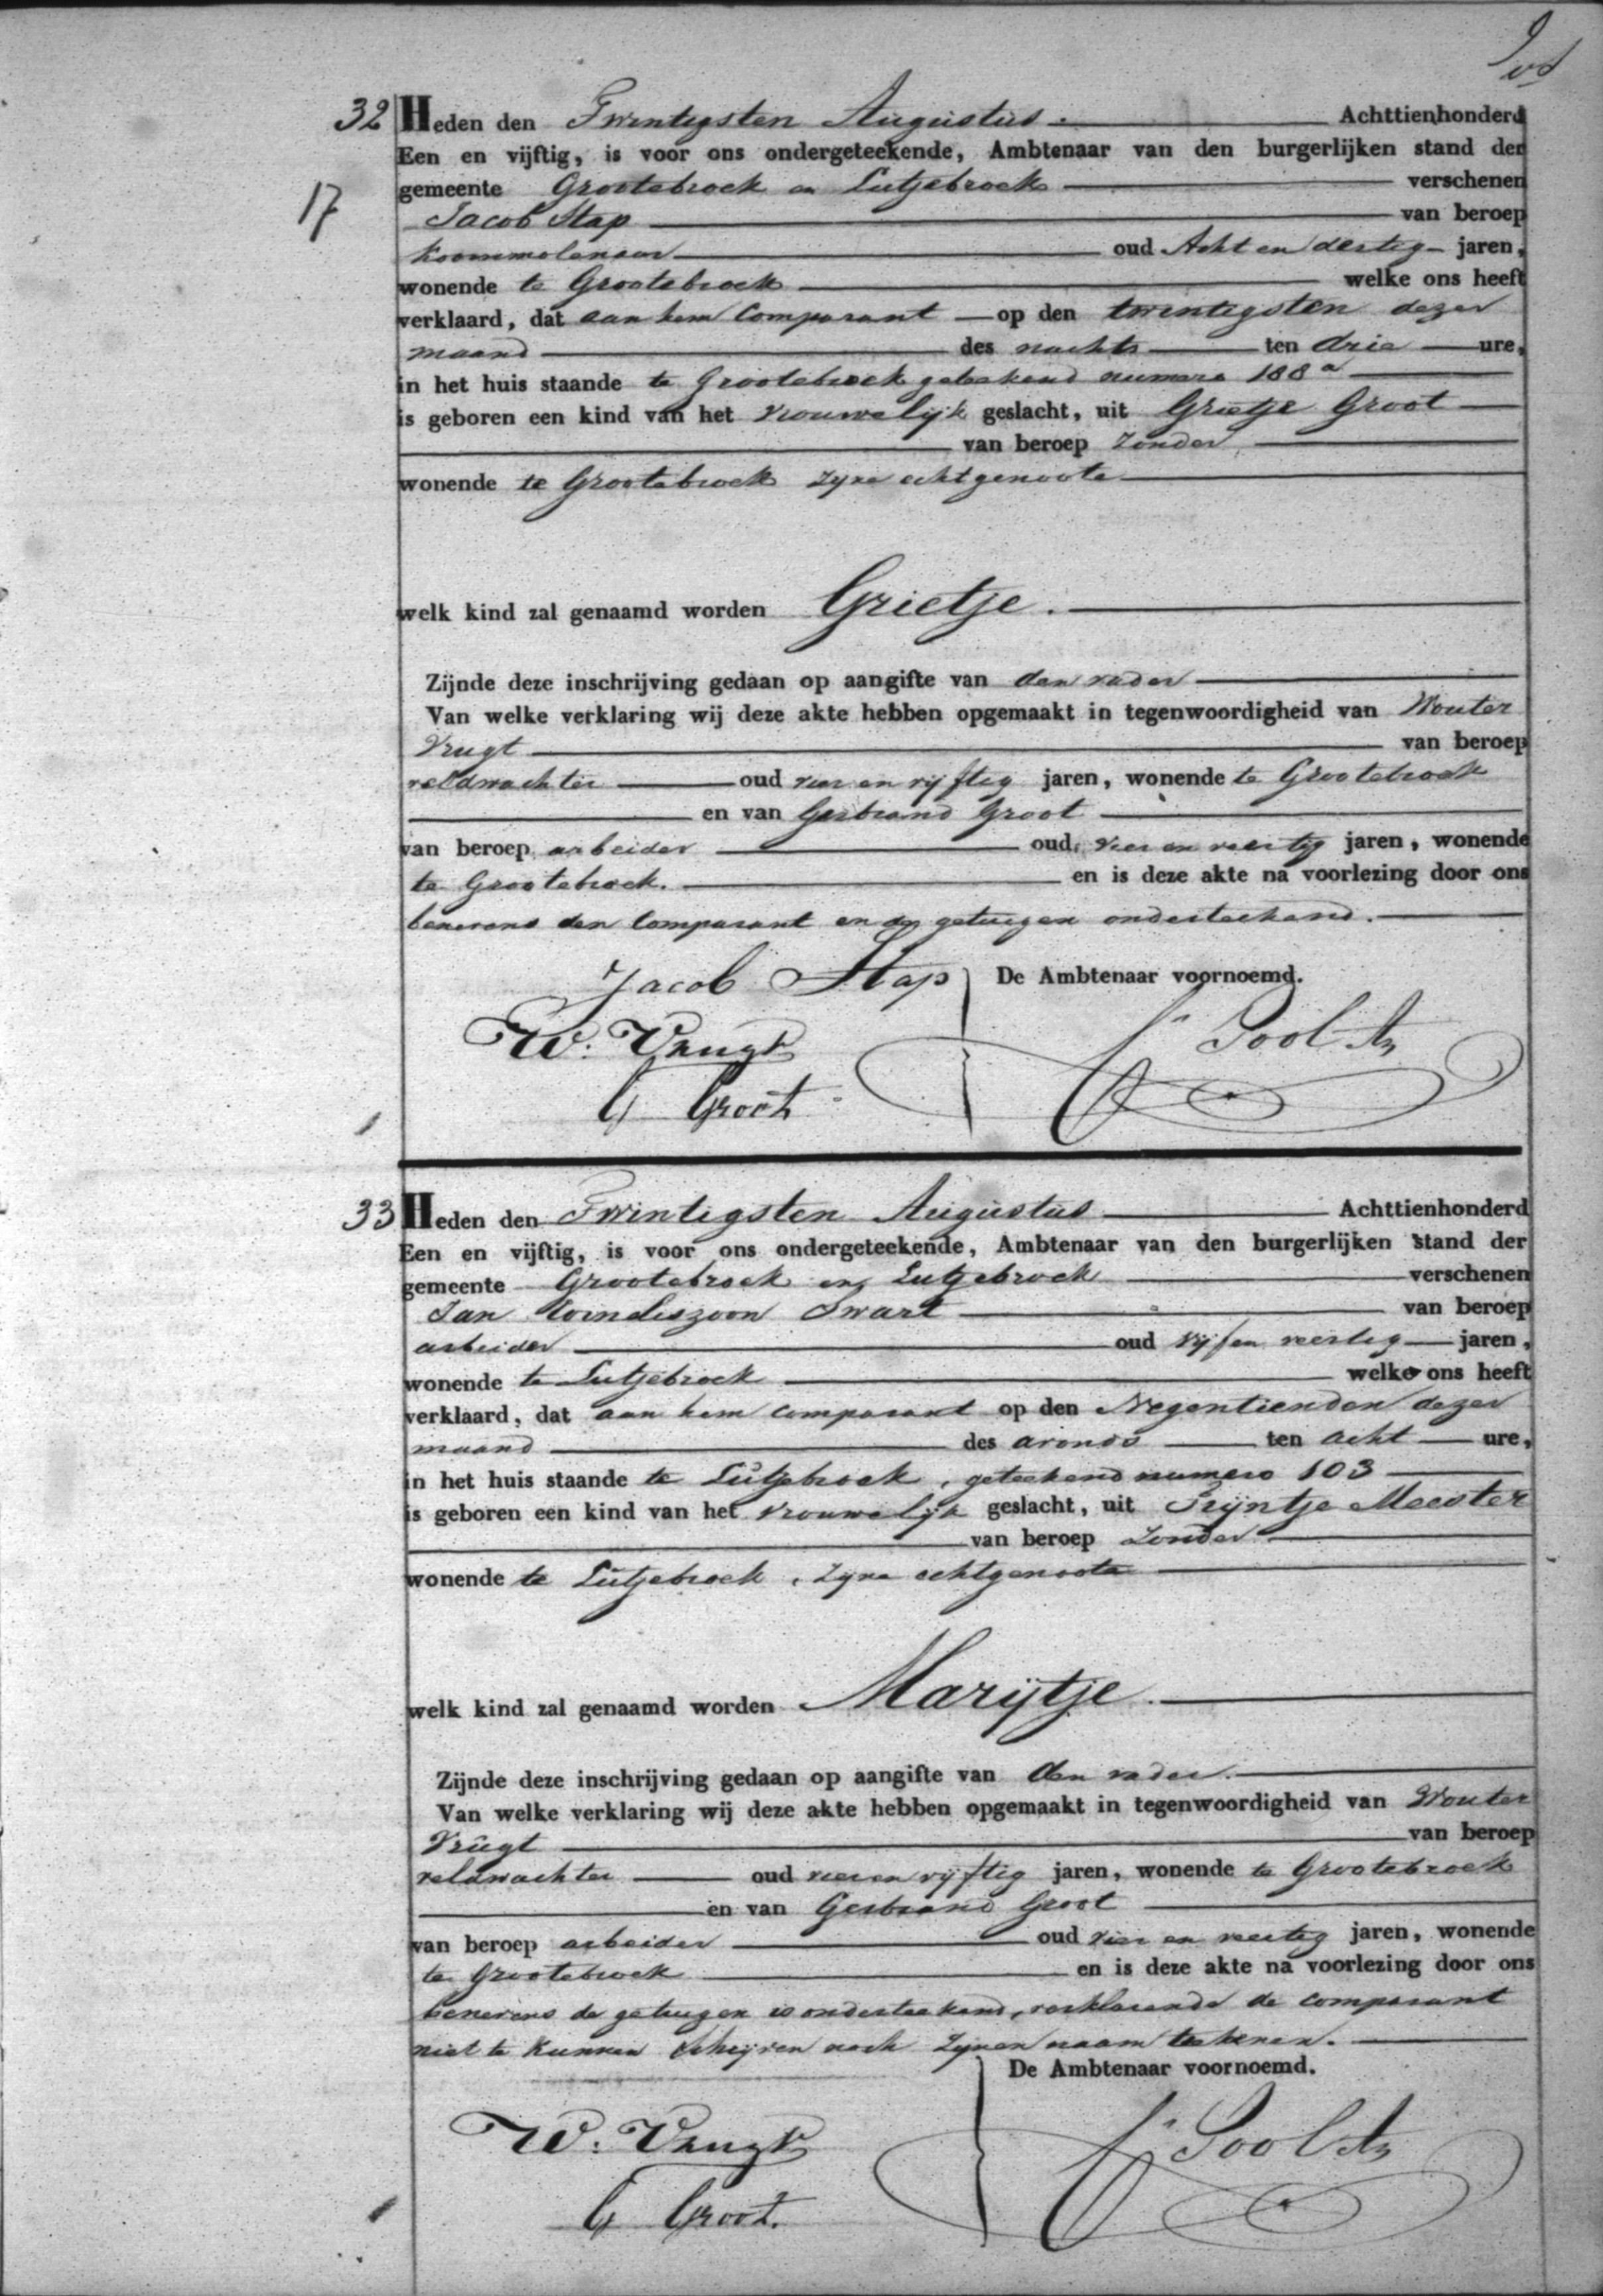 32 Heden den Twintigsten Augustus. Achttienhonderd
Een en vijftig, is voor ons ondergeteekende, Ambtenaar van den burgerlijken stand der
gemeente Grootebroek en Lutjebroek verschenen
17
Jacob Stap van beroep
Koornmolenaar oud Acht en dertig jaren,
wonende te Grootebroek welke ons heeft
verklaard, dat aan hem Comparant op den twintigsten dezer
maand des nachts ten drie ure,
in het huis staande te Grootebroek getekend numero 188a
is geboren een kind van het vrouwelijk geslacht, uit Grietje Groot
van beroep Zonder
wonende te Grootebroek Zijne echtgenoote
welk kind zal genaamd worden Grietje.
Zijnde deze inschrijving gedaan op aangifte van den vader
Van welke verklaring wij deze akte hebben opgemaakt in tegenwoordigheid van Wouter
Vrugt van beroep
veldwachter oud vier en vijftig jaren, wonende te Grootebroek
en van Gerbrand Groot
van beroep arbeider oud vier en veertig jaren, wonende
te Grootebroek. en is deze akte na voorlezing door ons
benevens den Comparant en de getuigen onderteekend.
Jacob Stap De Ambtenaar voornoemd.
W. Vrugt Pool Az
G Groot
33 Heden den Twintigsten Augustus Achttienhonderd
Een en vijftig, is voor ons ondergeteekende, Ambtenaar van den burgerlijken stand der
gemeente Grootebroek en Lutjebroek verschenen
Jan Corneliszoon Swart van beroep
arbeider oud Vijf en veertig jaren,
wonende te Lutjebroek welke ons heeft
verklaard, dat aan hem comparant op den Negentienden dezer
maand des avonds ten acht ure,
in het huis staande te Lutjebroek, geteekend numero 103
is geboren een kind van het vrouwelijk geslacht, uit Trijntje Meester
van beroep Zonder
wonende te Lutjebroek, Zijne echtgenoote
welk kind zal genaamd worden Marijtje.
Zijnde deze inschrijving gedaan op aangifte van den vader.
Van welke verklaring wij deze akte hebben opgemaakt in tegenwoordigheid van Wouter
Vrugt van beroep
veldwachter oud vier en vijftig jaren, wonende te Grootebroek
en van Gerbrand Groot
van beroep arbeider oud vier en veertig jaren, wonende
te Grootebroek en is deze akte na voorlezing door ons
benevens de getuigen is onderteekend, verklarende de comparant
niet te kunnen schrijven noch zijnen naam teekenen.
De Ambtenaar voornoemd.
W. Vrugt Pool Az
G Groot.